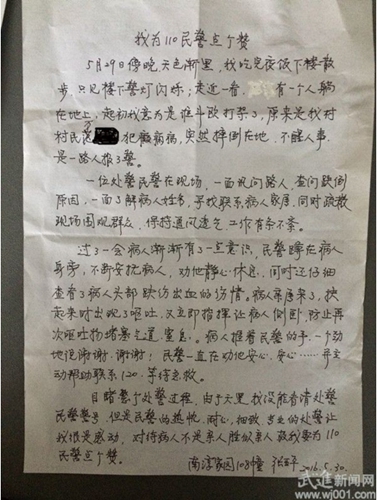 我为110民警点个赞
5月29日傍晚天色渐黑,我吃完夜饭下楼散
步,只见楼下警灯闪烁;走近一看,有一个人躺
在地上,起初我意为是谁斗殴打架了,原来是我村
村民 犯癫痫病,突然摔倒在地,不醒人事,
是一路人报了警。
一位处警民警在现场,一面询问路人,查问跌倒
原因,一面了解病人姓名,寻找联系病人家属,同时疏散
现场围观群众,保持通风透气,工作有条不紊。
过了一会病人渐渐有了一点意识,民警蹲在病人
身旁,不断安抚病人,劝他静心休息,同时还仔细
查看了病人头部跌伤出血的伤情。病人家属来了,扶
起来时出现了呕吐,又立即指挥让病人侧卧,防止再
次呕吐物堵塞气道,窒息。病人握着民警的手,一个劲
地说谢谢,谢谢!民警一直在劝他安心,安心……并主
动帮助联系120,等待急救。
目睹整个处警过程,由于天黑,我没能看清处警
民警警号,但是民警的热忱、耐心,细致,专业的处警让
我很受感动,对待病人不是亲人胜似亲人,故我要为110
民警点个赞。
南淳家园108幢
2016.5.30.
武进新闻网
www.wj001.com